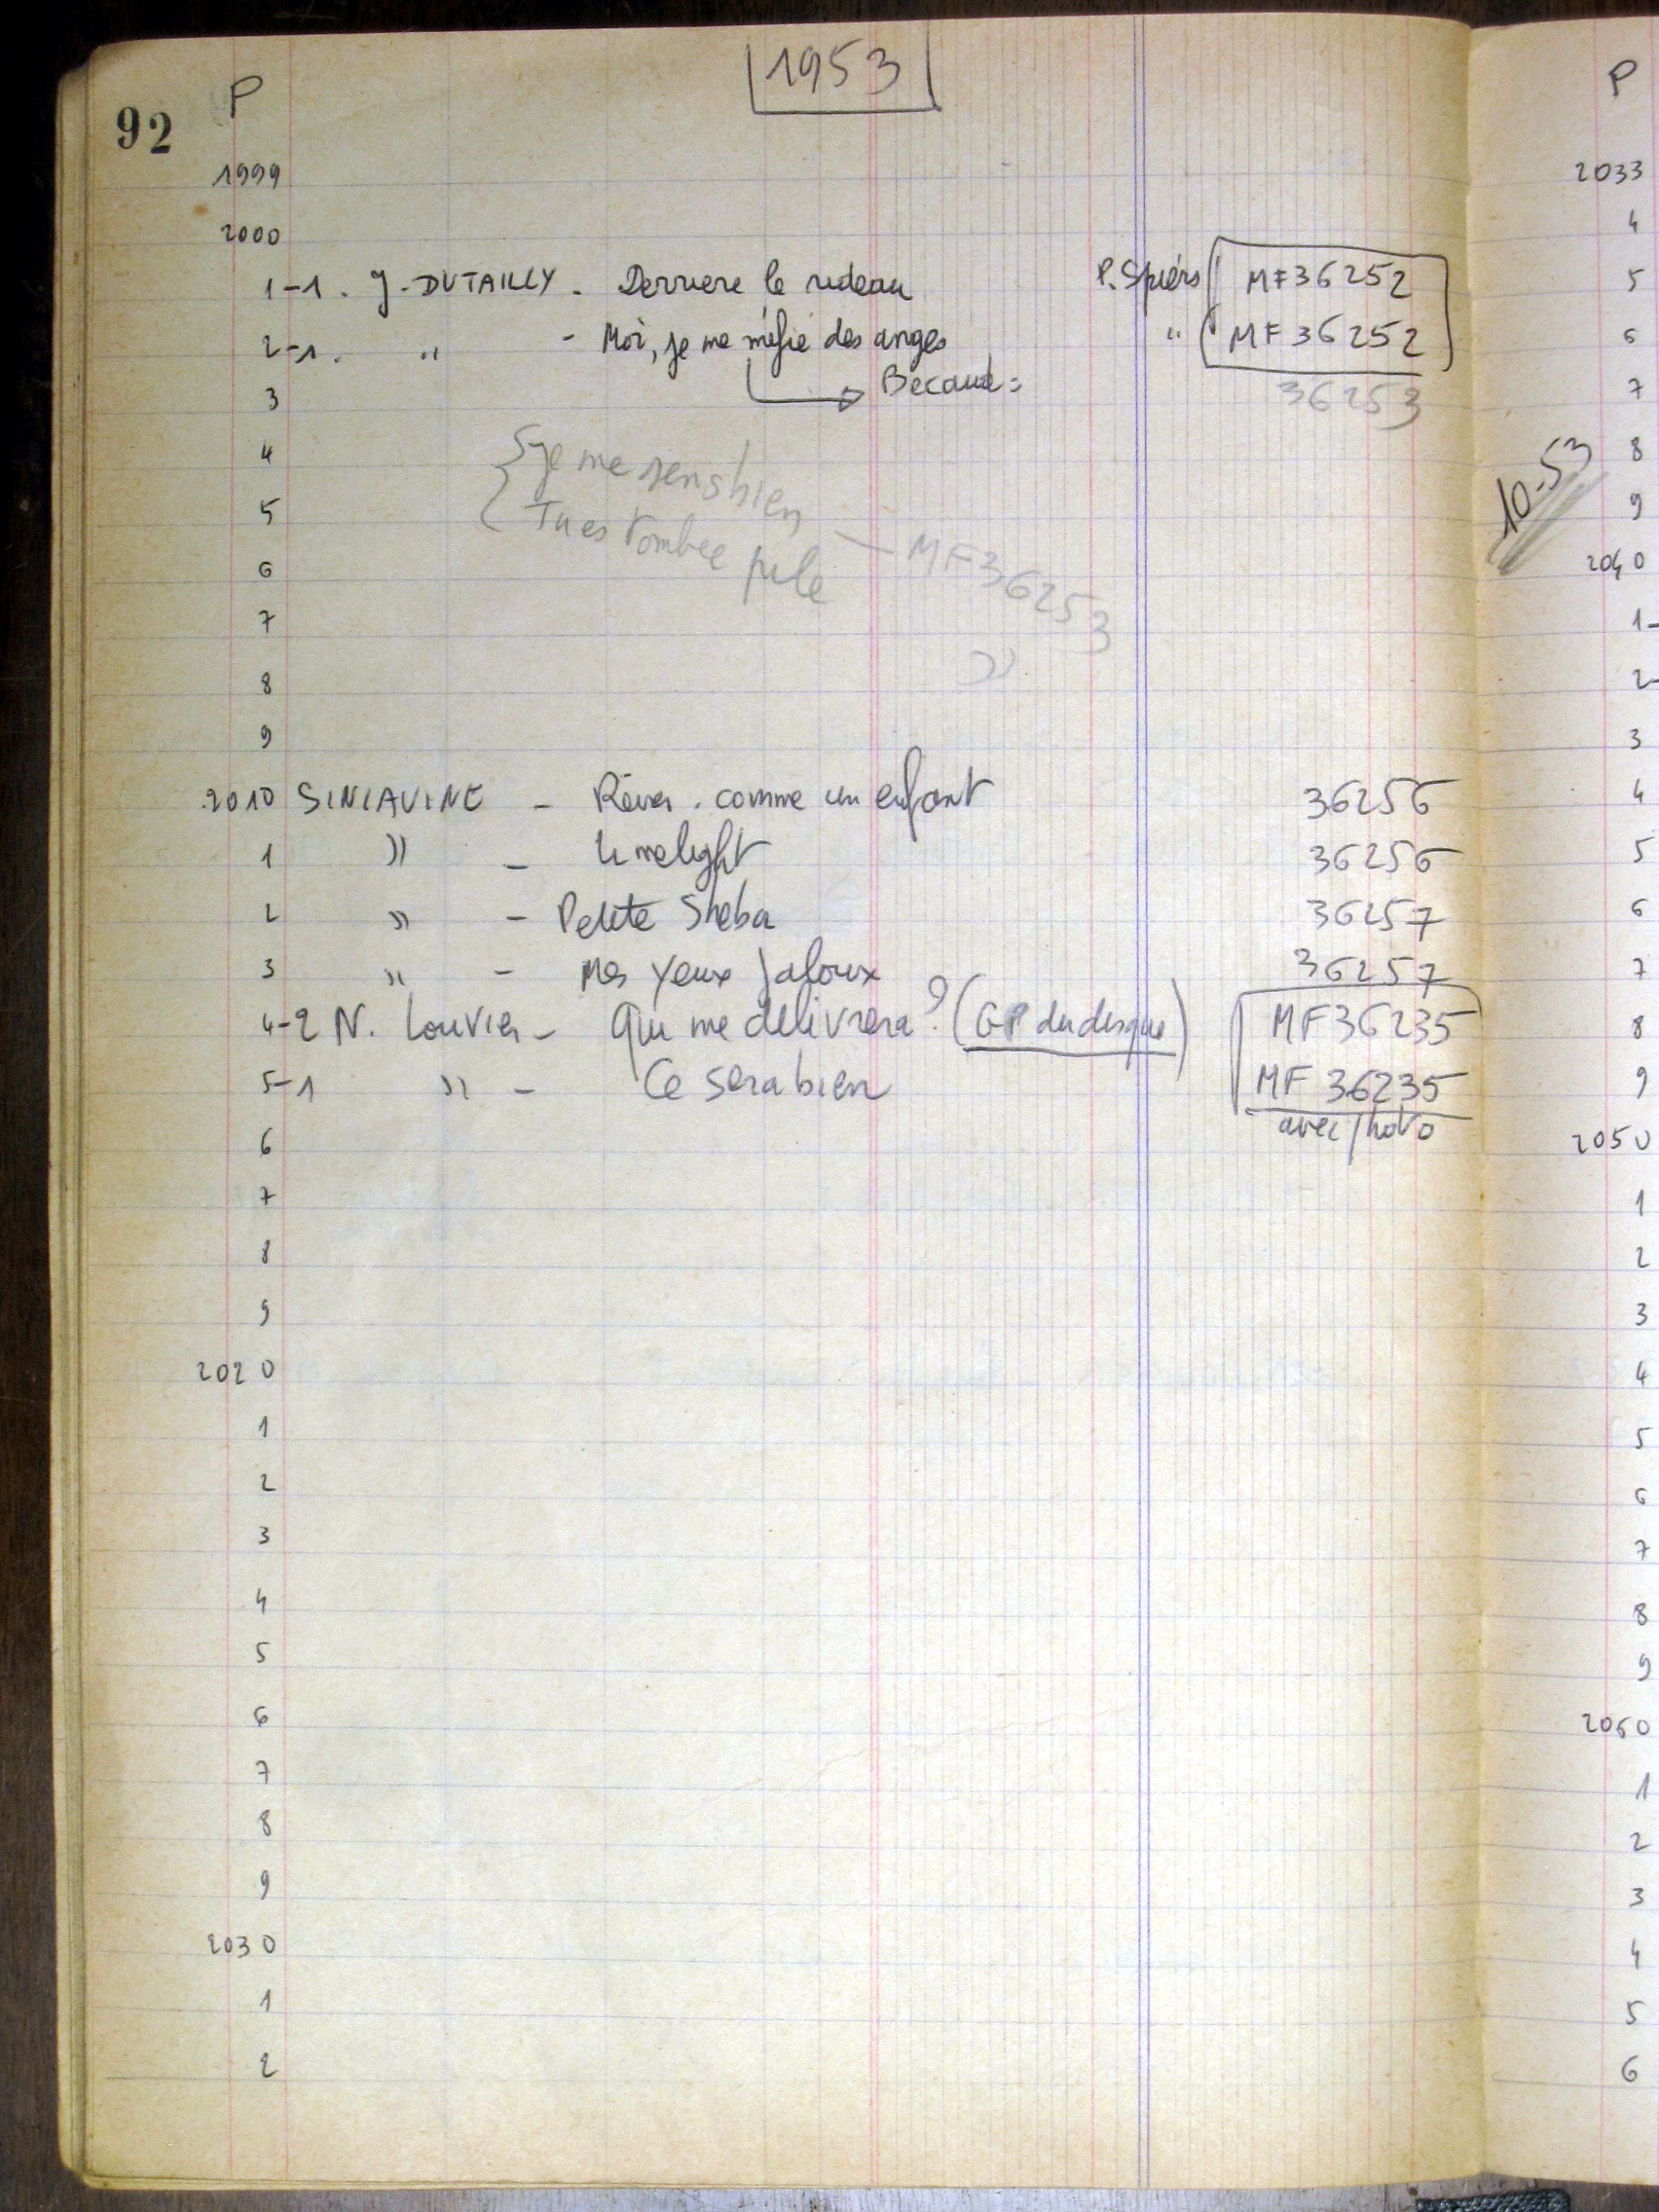 1953
92 P
1999
2000
1-1. J. DUTAILLY - Derriere le rideau P. Spiers MF36252
2-1. " - Moi, je me méfie des anges " MF36252
3 Becaud: 36253
4 Je me sens bien
5 Tu es tombée pile — MF36253
6
7
8 "
9
2010 SINIAVINE - Rêver comme un enfant 36256
1 " - Limelight 36256
2 " - Petite Sheba 36257
3 " - Mes yeux jaloux 36257
4-2 N. Louvier - Qui me délivrera? (GP du disque) MF36235
5-1 " - Ce sera bien MF 36235
6 avec photo
7
8
9
2020
1
2
3
4
5
6
7
8
9
2030
1
2
P
2033
4
5
6
7
8
10-53
9
2040
1-
2-
3
4
5
6
7
8
9
2050
1
2
3
4
5
6
7
8
9
2060
1
2
3
4
5
6